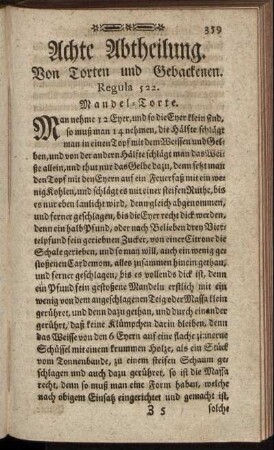 359
Achte Abtheilung.
Von Torten und Gebackenen.
Regula 522.
Mandel-Torte.
Man nehme 12 Eyer, und so die Eyer klein sind,
so muß man 14 nehmen, die Hälfte schlägt
man in einen Topf mit dem Weissen und Gel-
ben, und von der andern Hälfte schlägt man das Weis-
se allein, und thut nur das Gelbe dazu, denn setzt man
den Topf mit den Eyern auf ein Feuerfaß mit ein
wenig Kohlen, und schlägt es mit einer steifen Ruthe, bis
es nur eben laulicht wird, denn gleich abgenommen,
und ferner geschlagen, bis die Eyer recht dick werden,
denn ein halb Pfund, oder nach Belieben drey Vier-
telpfund fein geriebnen Zucker, von einer Citrone die
Schale gerieben, und so man will, auch ein wenig ge-
stoßenen Cardemom, alles zusammen hinein gethan,
und ferner geschlagen, bis es vollends dick ist, denn
ein Pfund fein gestoßene Mandeln erstlich mit ein
wenig von dem angeschlagenen Teig oder Massa klein
gerühret, und denn dazu gethan, und durch einander
gerühret, daß keine Klümpchen darin bleiben, denn
das Weisse von den 6 Eyern auf eine flache zinnerne
Schüssel mit einem krummen Holze, als ein Stück
vom Tonnenbande, zu einem steifen Schaum ge-
schlagen und auch dazu gerühret, so ist die Massa
recht, denn so muß man eine Form haben, welche
nach obigem Einsatz eingerichtet und gemacht ist,
Z 5 solche